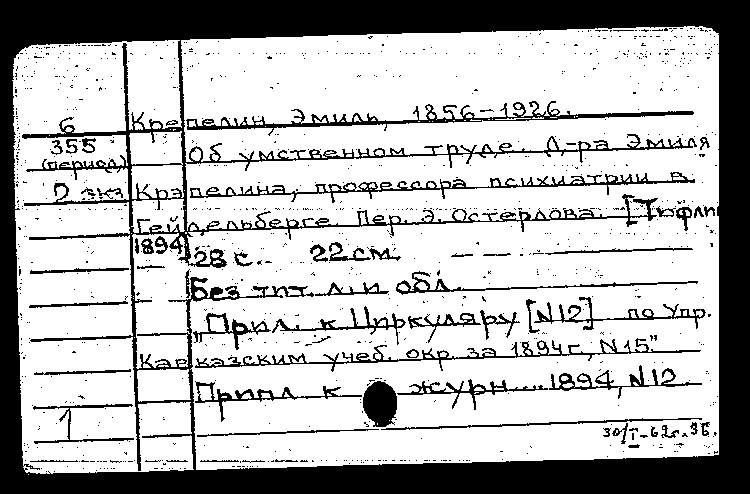 6 Крепелин, Эмиль, 1856-1926.
355 Об умственном труде. Д-ра Эмиля
(период)
2 экз Крэпелина, профессора психиатрии в
Гейдельберге. Пер. Э. Остерлова. [Тифли
1894] 28 с. 22 см.
Без тит. л. и обл.
"Прил. к Циркуляру [N12] по Упр.
Кавказским учеб. окр. за 1894г., N15."
Припл. к журн....1894, N12
1
30/I-62г.